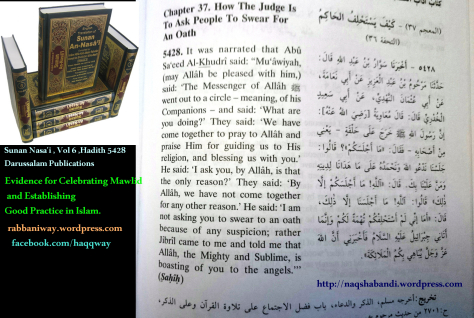 Sunan An-Nasâ'î
Sunan Nasa'i , Vol 6 ,Hadith 5428
Darussalam Publications
Evidence for Celebrating Mawlid
and Establishing
Good Practice in Islam.
rabbaniway.wordpress.com
facebook.com/haqqway
Chapter 37. How The Judge Is
To Ask People To Swear For
An Oath
5428. It was narrated that Abû
Sa'eed Al-Khudrî said: "Mu'âwiyah,
(may Allâh be pleased with him,)
said: 'The Messenger of Allâh ﷺ
went out to a circle – meaning, of his
Companions – and said: 'What are
you doing?' They said: 'We have
come together to pray to Allâh and
praise Him for guiding us to His
religion, and blessing us with you.'
He said: 'I ask you, by Allâh, is that
the only reason?' They said: 'By
Allâh, we have not come together
for any other reason.' He said: 'I am
not asking you to swear to an oath
because of any suspicion; rather
Jibril came to me and told me that
Allâh, the Mighty and Sublime, is
boasting of you to the angels.'"
(Sahîh)
(المعجم ٣٧) - كَيْفَ يَسْتَحْلِفُ الْحَاكِمُ
(التحفة ٣٦)
٥٤٢٨ - أَخْبَرَنَا سَوَّارُ بْنُ عَبْدِ اللهِ قَالَ:
حَدَّثَنَا مَرْحُومُ بْنُ عَبْدِ الْعَزِيزِ عَنْ أَبِي نَعَامَةَ،
عَنْ أَبِي عُثْمَانَ النَّهْدِيِّ، عَنْ أَبِي سَعِيدٍ
الْخُدْرِيِّ قَالَ: قَالَ مُعَاوِيَةُ [رَضِيَ اللهُ عَنْهُ]:
إِنَّ رَسُولَ اللهِ ﷺ خَرَجَ عَلَى حَلْقَةٍ - يَعْنِي
مِنْ أَصْحَابِهِ - فَقَالَ: «مَا أَجْلَسَكُمْ؟» قَالُوا:
جَلَسْنَا نَدْعُو اللهَ وَنَحْمَدُهُ عَلَى مَا هَدَانَا لِدِينِهِ
وَمَنَّ عَلَيْنَا بِكَ، قَالَ: «آللهِ! مَا أَجْلَسَكُمْ إِلَّا
ذٰلِكَ؟» قَالُوا: آللهِ! مَا أَجْلَسَنَا إِلَّا ذٰلِكَ،
قَالَ: «أَمَا إِنِّي لَمْ أَسْتَحْلِفْكُمْ تُهْمَةً لَكُمْ وَإِنَّمَا
أَتَانِي جِبْرِيلُ عَلَيْهِ السَّلَامُ فَأَخْبَرَنِي أَنَّ اللهَ
عَزَّ وَجَلَّ يُبَاهِي بِكُمُ الْمَلَائِكَةَ».
http://naqshabandi.wordpress.com
تخريج: أخرجه مسلم، الذكر والدعاء، باب فضل الاجتماع على تلاوة القرآن وعلى الذكر،
ح:٢٧٠١ من حديث مرحوم به